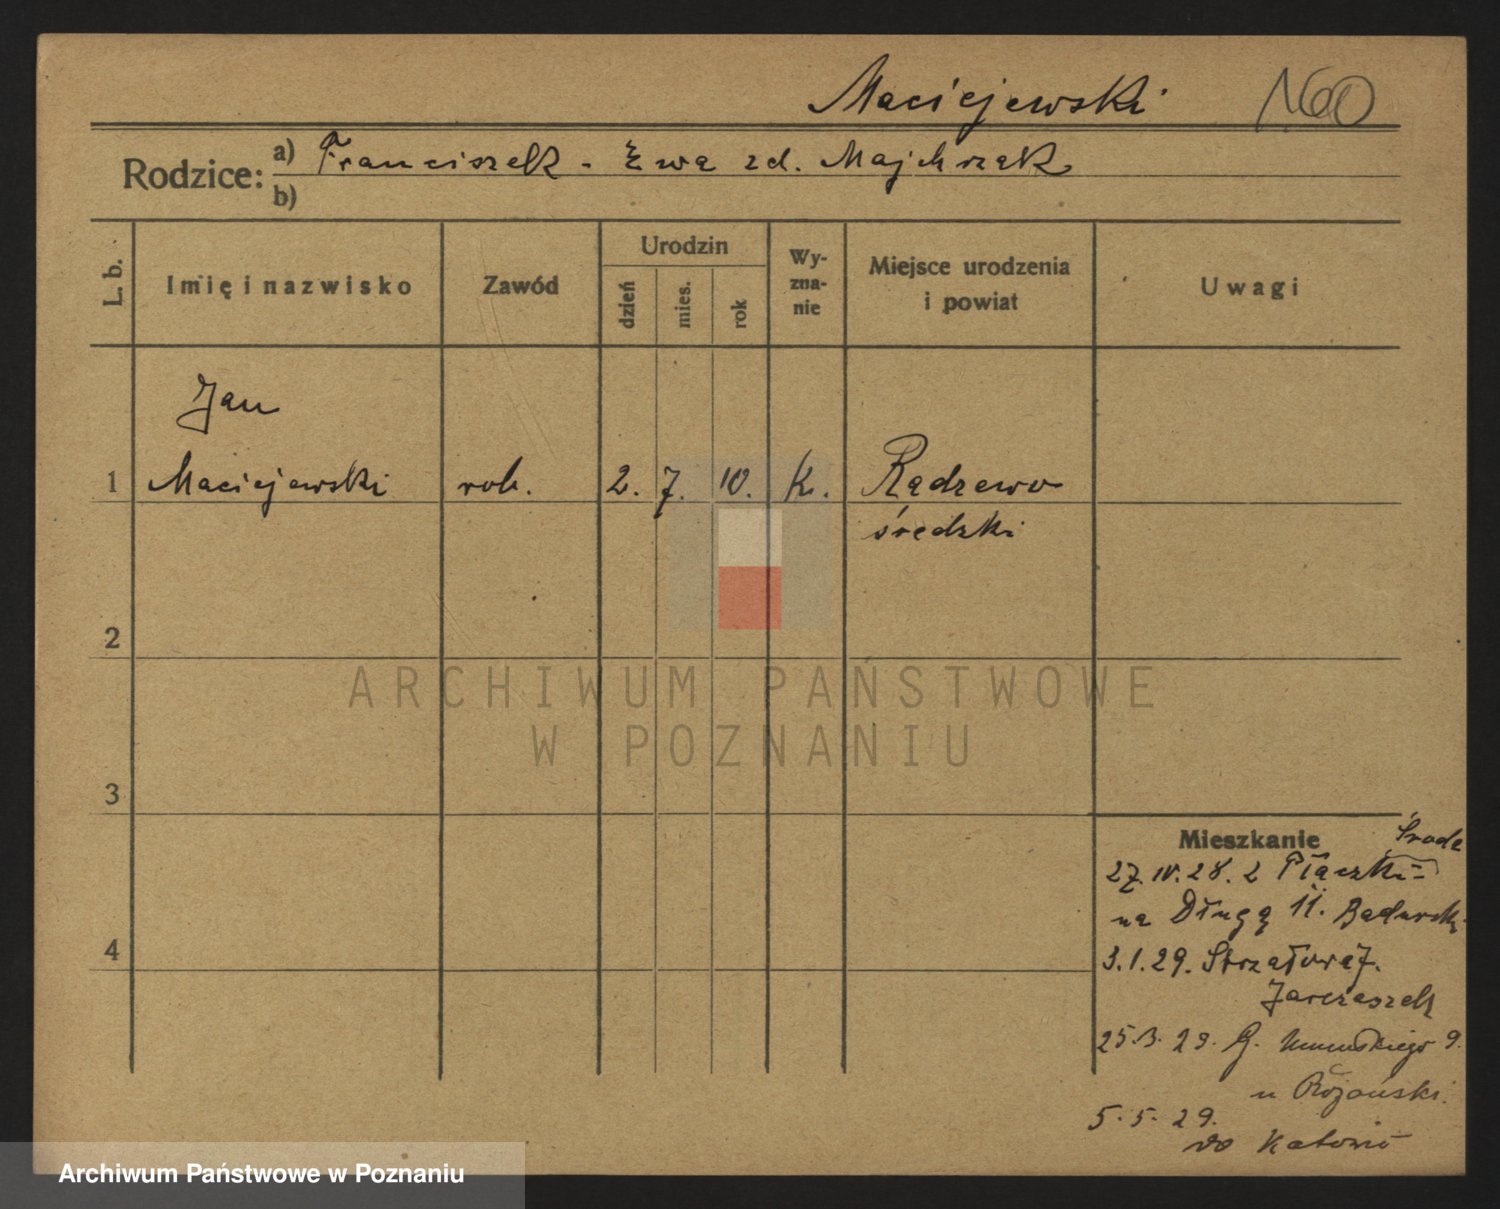 Maciejewski 160
Rodzice: a) Franciszek - Ewa zd. Majchrzak
b)
L. b.
Imię i nazwisko
Zawód
Urodzin
dzień
mies.
rok
Wy-
zna-
nie
Miejsce urodzenia
i powiat
Uwagi
Jan
1 Maciejewski rob. 2. 7. 10. K. Radzewo
średzki
2
ARCHIWUM PAŃSTWOWE
W POZNANIU
3
Mieszkanie Środa
27.IV.28. z Płaczki
na Długą 11.
4
3.1.29. Strzałowa 7.
Jarczaszek
25.3.29. G. Umińskiego 9.
u Różański.
5.5.29.
do Katowic
Archiwum Państwowe w Poznaniu